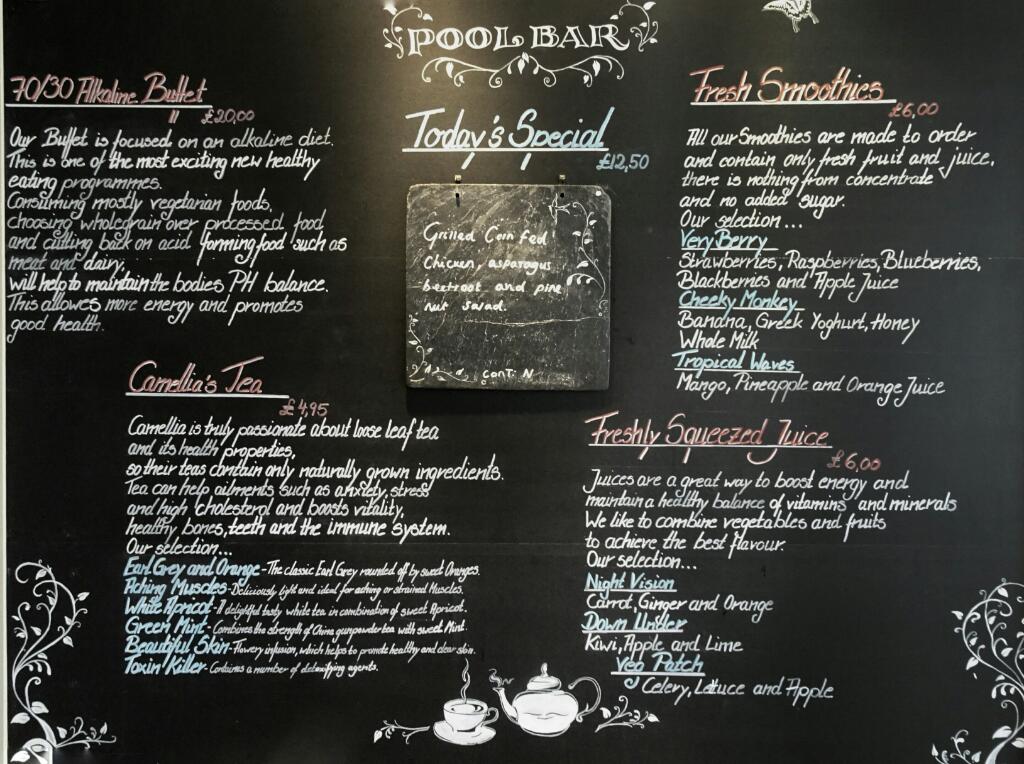 POOL BAR
70/30 Alkaline Buffet
£20,00
Our Buffet is focused on an alkaline diet.
This is one of the most exciting new healthy
eating programmes.
Consuming mostly vegetarian foods,
choosing wholegrain over processed food,
and cutting back on acid forming food such as
meat and dairy,
will help to maintain the bodies PH balance.
This allowes more energy and promotes
good health.
Today's Special
£12,50
Grilled Corn fed
Chicken, asparagus
beetroot and pine
nut salad.
Cont. N
Camellia's Tea
£4,95
Camellia is truly passionate about loose leaf tea
and its health properties,
so their teas contain only naturally grown ingredients.
Tea can help ailments such as anxiety, stress
and high cholesterol and boosts vitality,
healthy bones, teeth and the immune system.
Our selection...
Earl Grey and Orange - The classic Earl Grey rounded off by sweet Oranges.
Aching Muscles - Deliciously light and ideal for aching or strained Muscles.
White Apricot - A delightful tasty white tea in combination of sweet Apricot.
Green Mint - Combines the strength of China gunpowder tea with sweet Mint.
Beautiful Skin - Flowery infusion, which helps to promote healthy and clear skin.
Toxin Killer - Contains a number of detoxifying agents.
Fresh Smoothies
£6,00
All our Smoothies are made to order
and contain only fresh fruit and juice,
there is nothing from concentrate
and no added sugar.
Our selection...
Very Berry
Strawberries, Raspberries, Blueberries,
Blackberries and Apple Juice
Cheeky Monkey
Banana, Greek Yoghurt, Honey
Whole Milk
Tropical Waves
Mango, Pineapple and Orange Juice
Freshly Squeezed Juice
£6,00
Juices are a great way to boost energy and
maintain a healthy balance of vitamins and minerals
We like to combine vegetables and fruits
to achieve the best flavour.
Our selection...
Night Vision
Carrot, Ginger and Orange
Down Under
Kiwi, Apple and Lime
Veg Patch
Celery, Lettuce and Apple